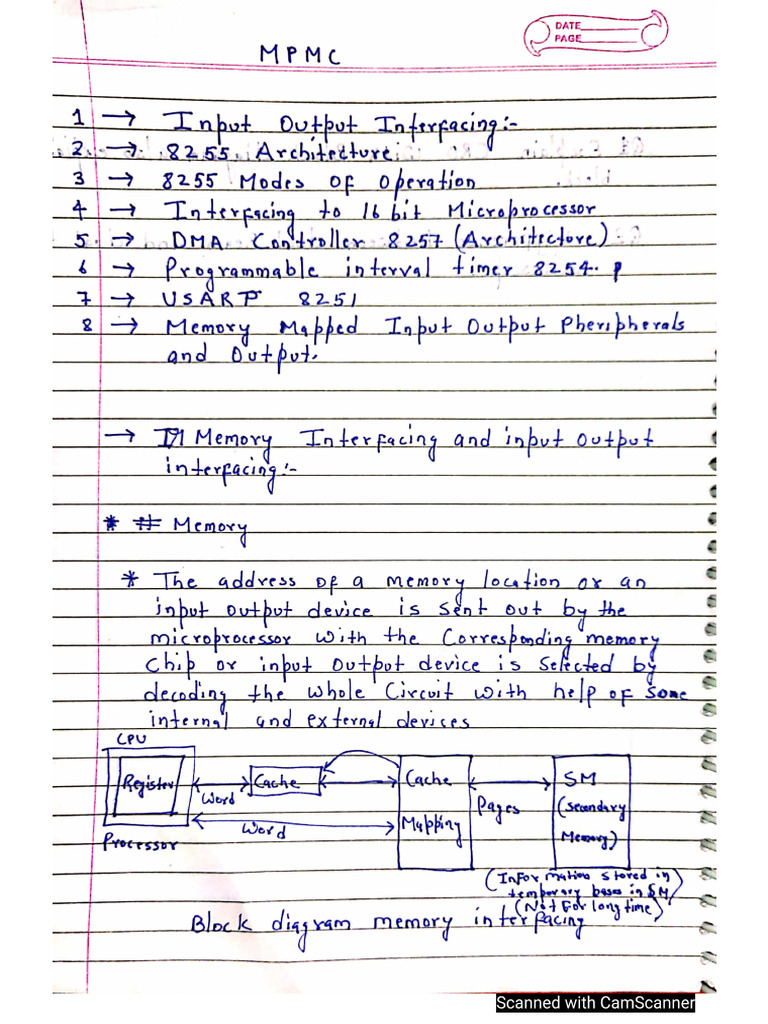 DATE
PAGE
MPMC
1 → Input Output Interfacing:-
2 → 8255 Architecture
3 → 8255 Modes of Operation
4 → Interfacing to 16 bit Microprocessor
5 → DMA Controller 8257 (Architecture)
6 → Programmable interval timer 8254.
7 → USART 8251
8 → Memory Mapped Input Output Pheripherals
and Output.
→ Memory Interfacing and input output
interfacing:-
* # Memory
* The address of a memory location or an
input output device is sent out by the
microprocessor with the Corresponding memory
Chip or input output device is selected by
decoding the whole Circuit with help of some
internal and external devices
CPU
Register
Word
Cache
Cache
Mapping
Pages
SM
(Secondary
Memory)
Word
Processor
(Information stored in
temporary bases in SM)
(Not For long time)
Block diagram memory interfacing
Scanned with CamScanner